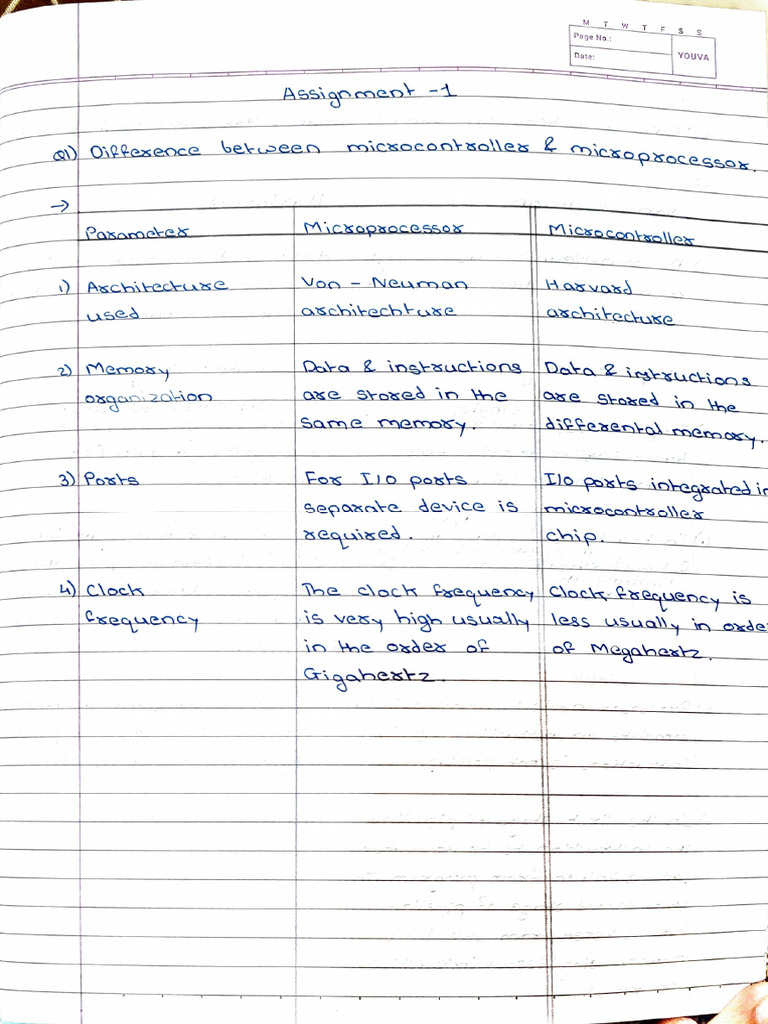 M T W T F S S
Page No.:
Date:
YOUVA
Assignment - 1
Q1) Difference between microcontroller & microprocessor.
→
Parameter Microprocessor Microcontroller
1) Architecture Von - Neuman Harvard
used architechture architecture
2) Memory Data & instructions Data & instructions
organization are stored in the are stored in the
same memory. differental memory.
3) Ports For I/O ports I/O ports integrated in
separate device is microcontroller
required. chip.
4) Clock The clock frequency Clock frequency is
frequency is very high usually less usually in orde
in the order of of Megahertz.
Gigahertz.